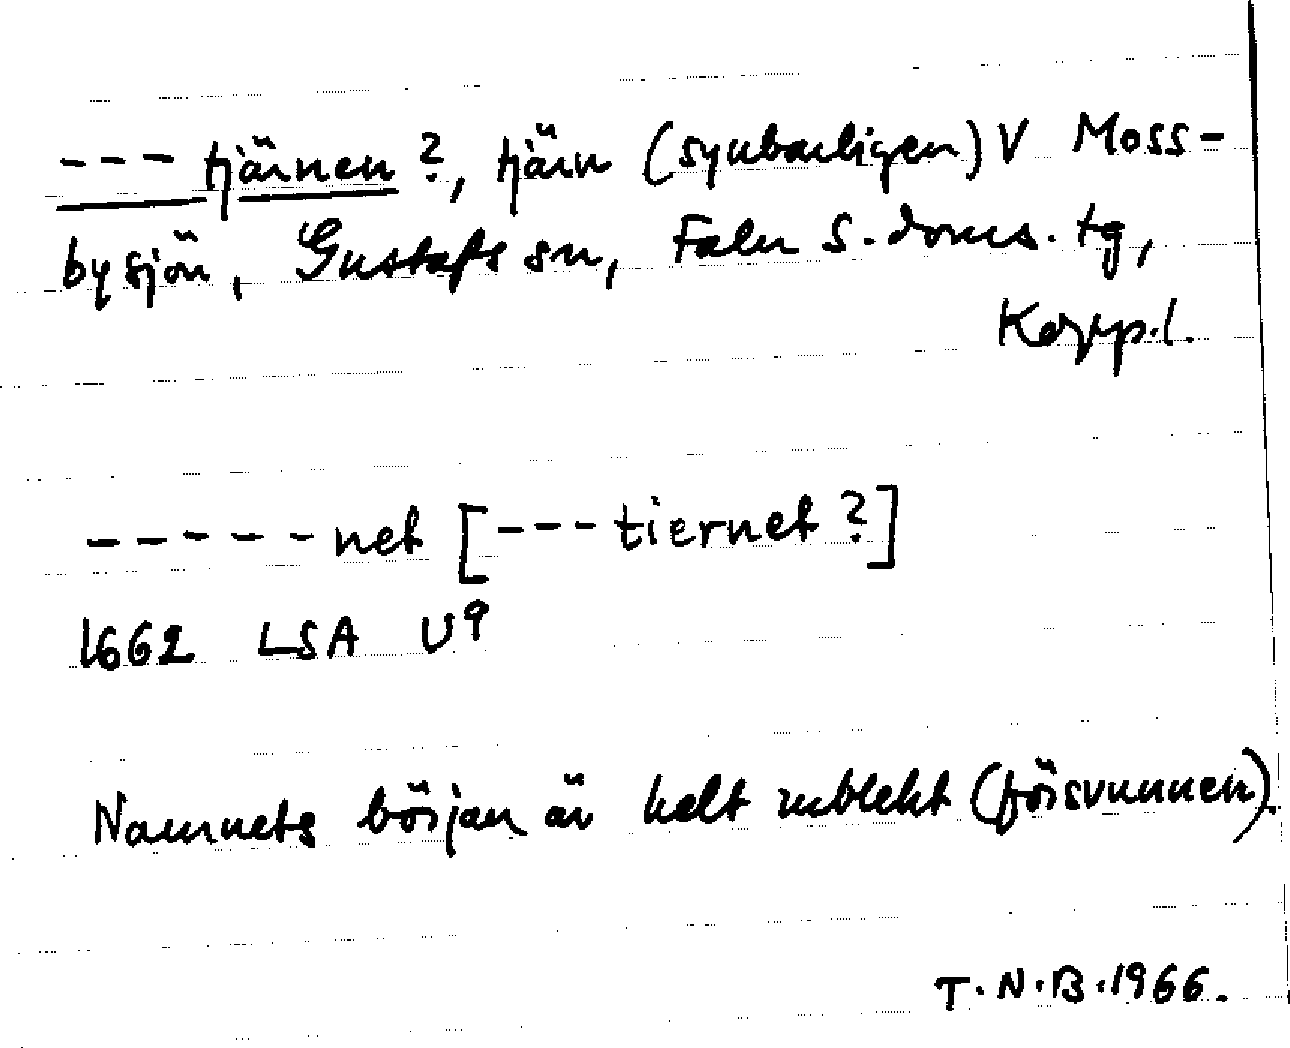 --- tjärnen?, tjärn (synbarligen) V Moss-
bysjön, Gustafs sn, Falu S. doms. tg,
Kopp. l.
----- net [--- tiernet?]
1662 LSA U9
Namnets början är helt urblekt (försvunnen).
T. N. B. 1966.